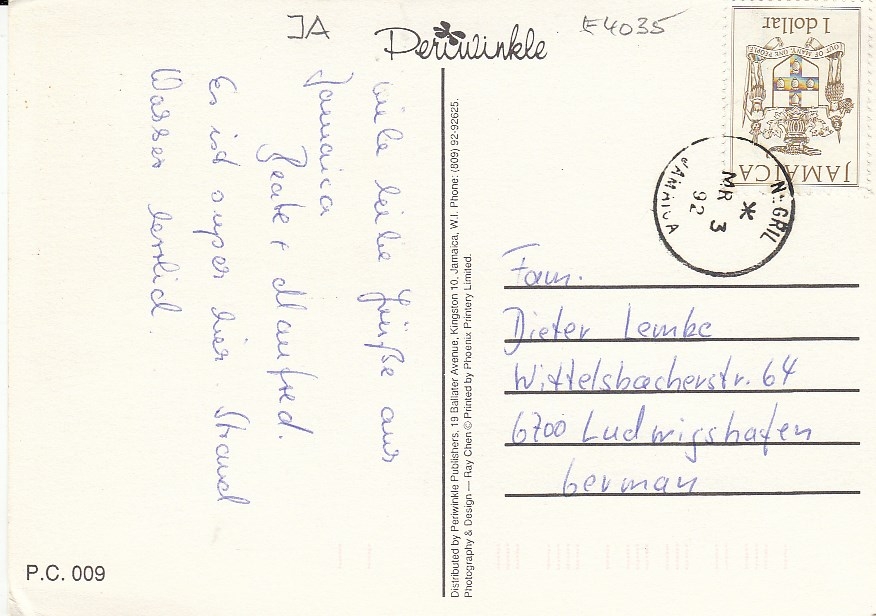 JA
E4035
Periwinkle
1 dollar
OUT OF MANY, ONE PEOPLE
JAMAICA
NEGRIL
*
MR 3
92
JAMAICA
viele liebe Grüße aus
Jamaica
Beate + Manfred.
Es ist super hier. Strand
Wasser herrlich.
Distributed by Periwinkle Publishers, 19 Ballater Avenue, Kingston 10, Jamaica, W.I. Phone: (809) 92-92625.
Photography & Design — Ray Chen © Printed by Phoenix Printery Limited.
Fam.
Dieter Lembe
Wittelsbacherstr. 64
6700 Ludwigshafen
German
P.C. 009